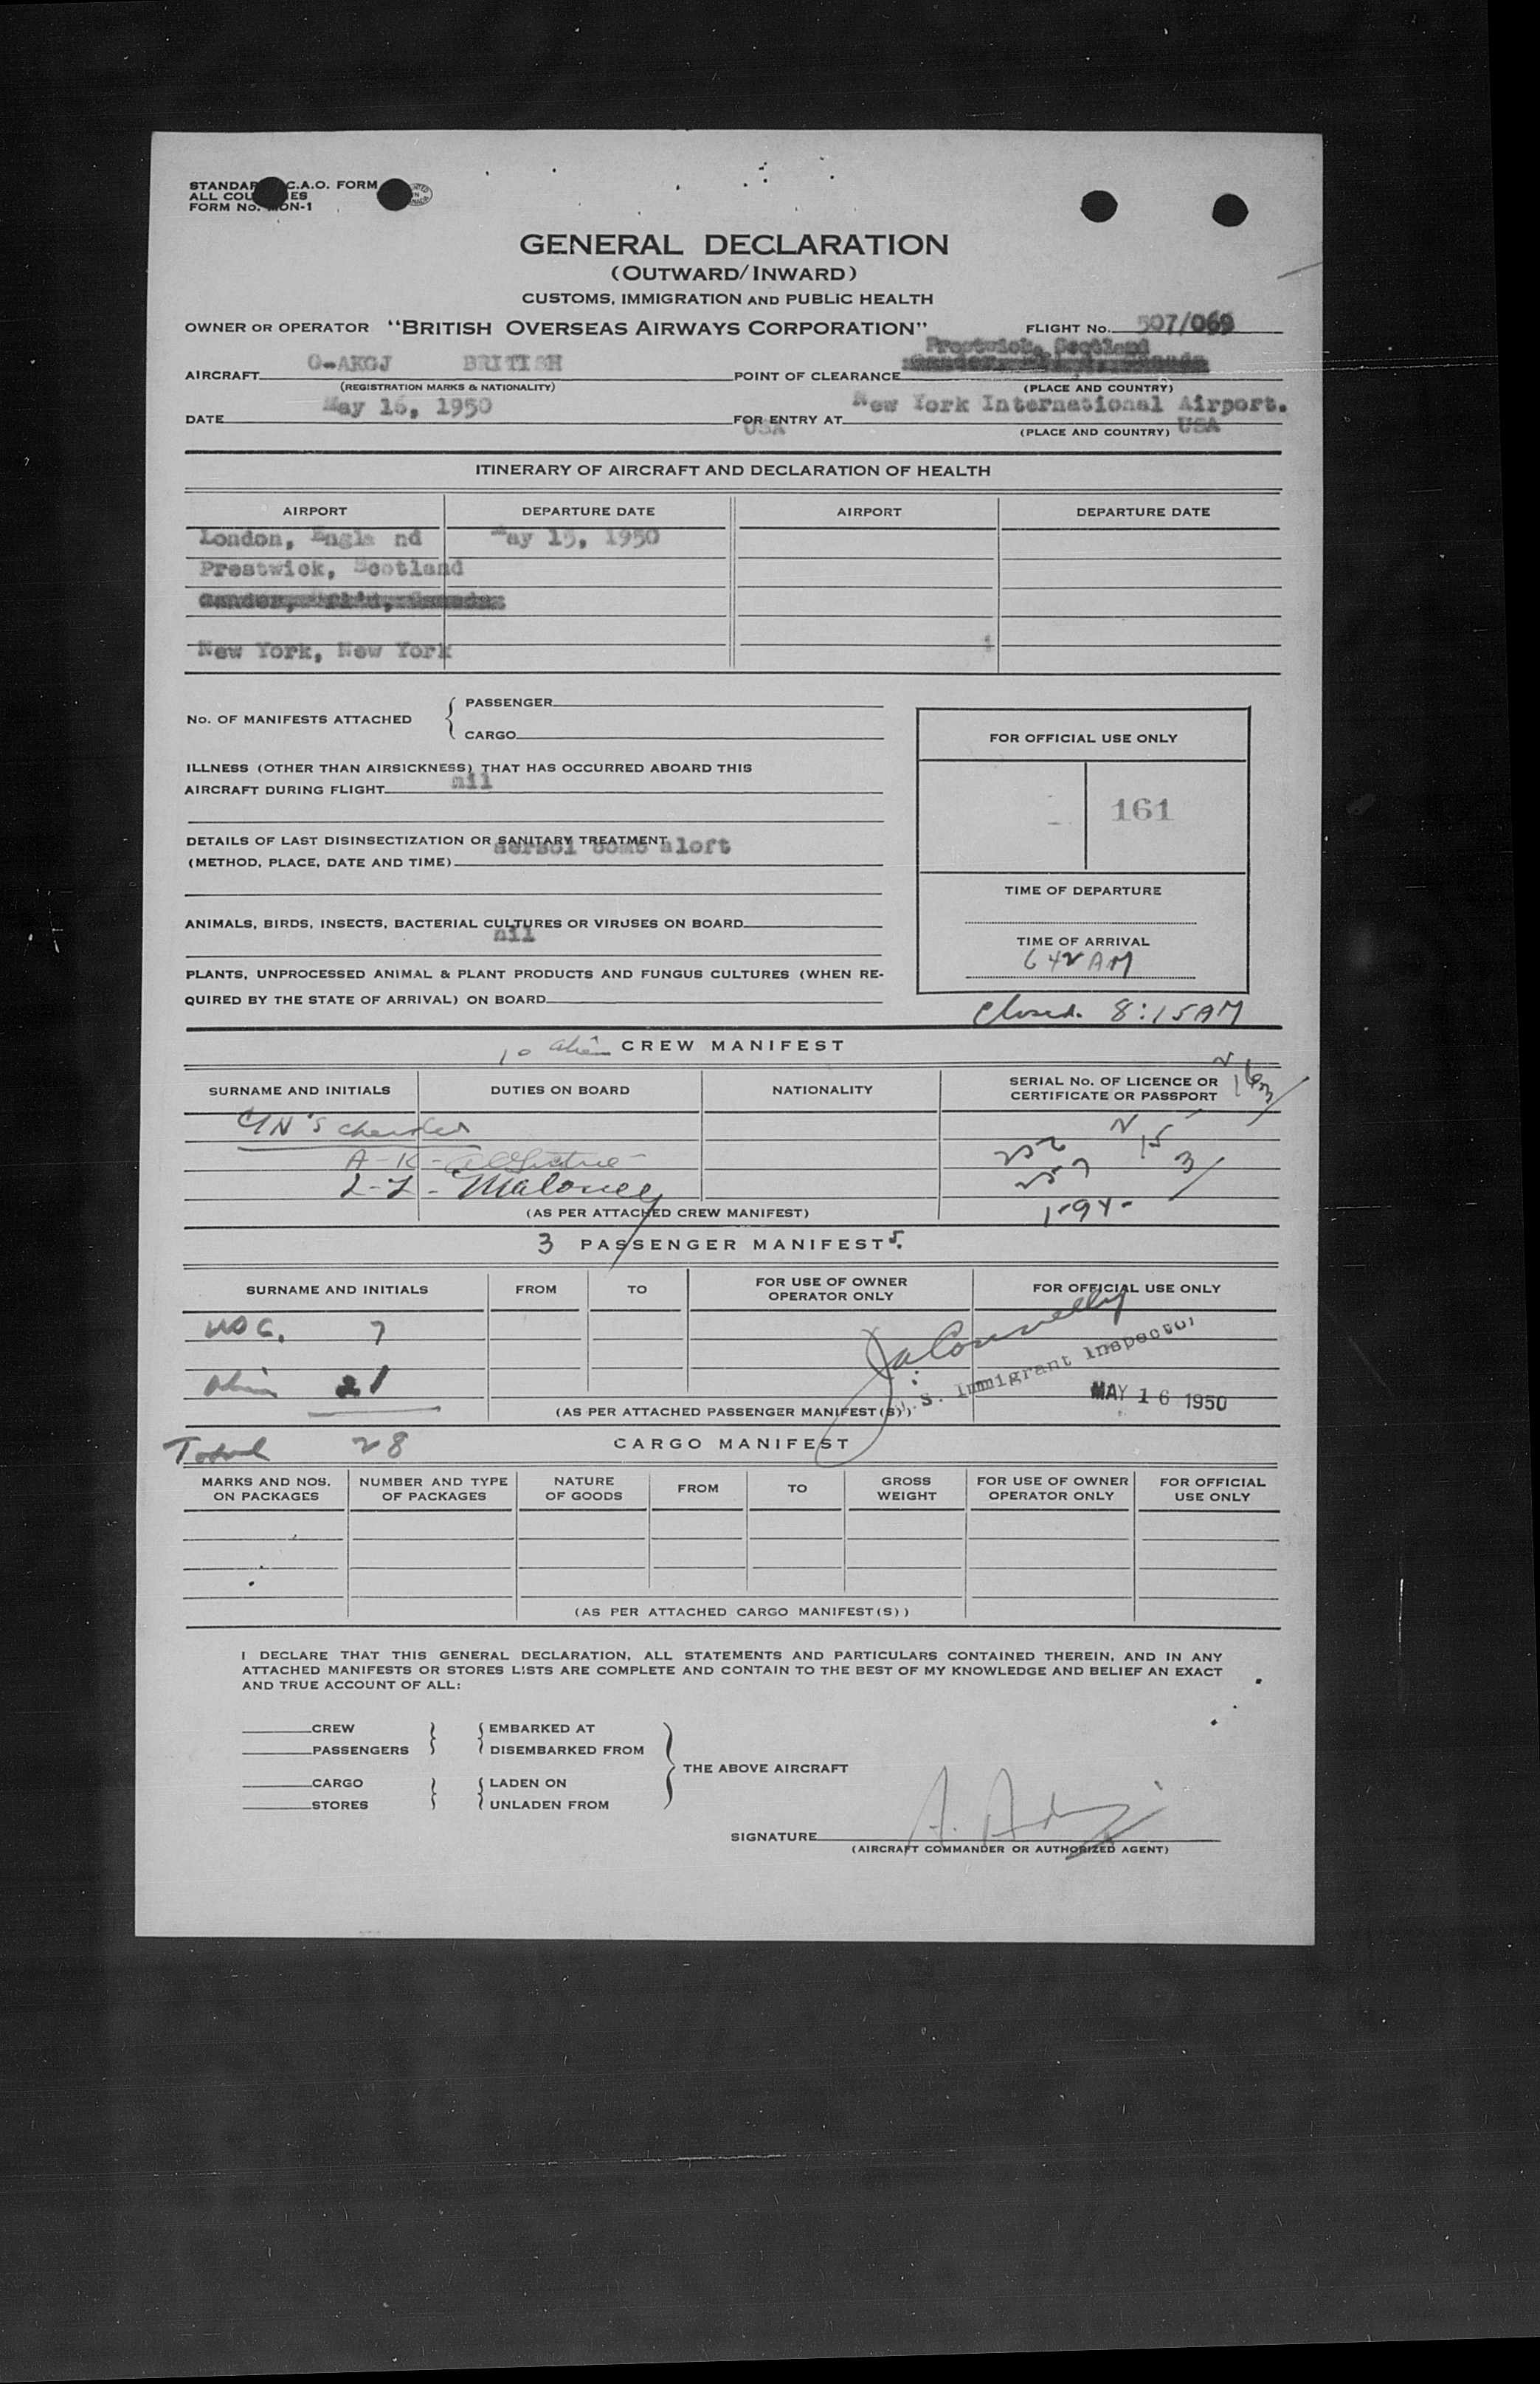 STANDARD I.C.A.O. FORM
ALL COUNTRIES
FORM No. MON-1
GENERAL DECLARATION
(OUTWARD/INWARD)
CUSTOMS, IMMIGRATION AND PUBLIC HEALTH
OWNER OR OPERATOR "BRITISH OVERSEAS AIRWAYS CORPORATION" FLIGHT No. 507/069
Prestwick, Scotland
AIRCRAFT G-AKGJ BRITISH POINT OF CLEARANCE
(REGISTRATION MARKS & NATIONALITY) (PLACE AND COUNTRY)
DATE May 16, 1950 FOR ENTRY AT New York International Airport.
USA (PLACE AND COUNTRY) USA
ITINERARY OF AIRCRAFT AND DECLARATION OF HEALTH
AIRPORT DEPARTURE DATE AIRPORT DEPARTURE DATE
London, Engla nd May 15, 1950
Prestwick, Scotland
Gander, Nfl'd, Canada
New York, New York
No. OF MANIFESTS ATTACHED { PASSENGER
CARGO
ILLNESS (OTHER THAN AIRSICKNESS) THAT HAS OCCURRED ABOARD THIS
AIRCRAFT DURING FLIGHT nil
DETAILS OF LAST DISINSECTIZATION OR SANITARY TREATMENT
(METHOD, PLACE, DATE AND TIME) aersol bomb aloft
ANIMALS, BIRDS, INSECTS, BACTERIAL CULTURES OR VIRUSES ON BOARD
nil
PLANTS, UNPROCESSED ANIMAL & PLANT PRODUCTS AND FUNGUS CULTURES (WHEN RE-
QUIRED BY THE STATE OF ARRIVAL) ON BOARD
FOR OFFICIAL USE ONLY
161
TIME OF DEPARTURE
TIME OF ARRIVAL
642 AM
Closed. 8:15AM
10 alien CREW MANIFEST
SURNAME AND INITIALS DUTIES ON BOARD NATIONALITY SERIAL No. OF LICENCE OR
CERTIFICATE OR PASSPORT
L-L- Maloney
(AS PER ATTACHED CREW MANIFEST)
3 PASSENGER MANIFEST S.
SURNAME AND INITIALS FROM TO FOR USE OF OWNER
OPERATOR ONLY FOR OFFICIAL USE ONLY
USC. 7
Alien 21
J.A. Connelly
U.S. Immigrant Inspector
MAY 16 1950
(AS PER ATTACHED PASSENGER MANIFEST(S))
Total 28
CARGO MANIFEST
MARKS AND NOS.
ON PACKAGES NUMBER AND TYPE
OF PACKAGES NATURE
OF GOODS FROM TO GROSS
WEIGHT FOR USE OF OWNER
OPERATOR ONLY FOR OFFICIAL
USE ONLY
(AS PER ATTACHED CARGO MANIFEST(S))
I DECLARE THAT THIS GENERAL DECLARATION, ALL STATEMENTS AND PARTICULARS CONTAINED THEREIN, AND IN ANY
ATTACHED MANIFESTS OR STORES LISTS ARE COMPLETE AND CONTAIN TO THE BEST OF MY KNOWLEDGE AND BELIEF AN EXACT
AND TRUE ACCOUNT OF ALL:
CREW EMBARKED AT
PASSENGERS DISEMBARKED FROM
THE ABOVE AIRCRAFT
CARGO LADEN ON
STORES UNLADEN FROM
SIGNATURE
(AIRCRAFT COMMANDER OR AUTHORIZED AGENT)